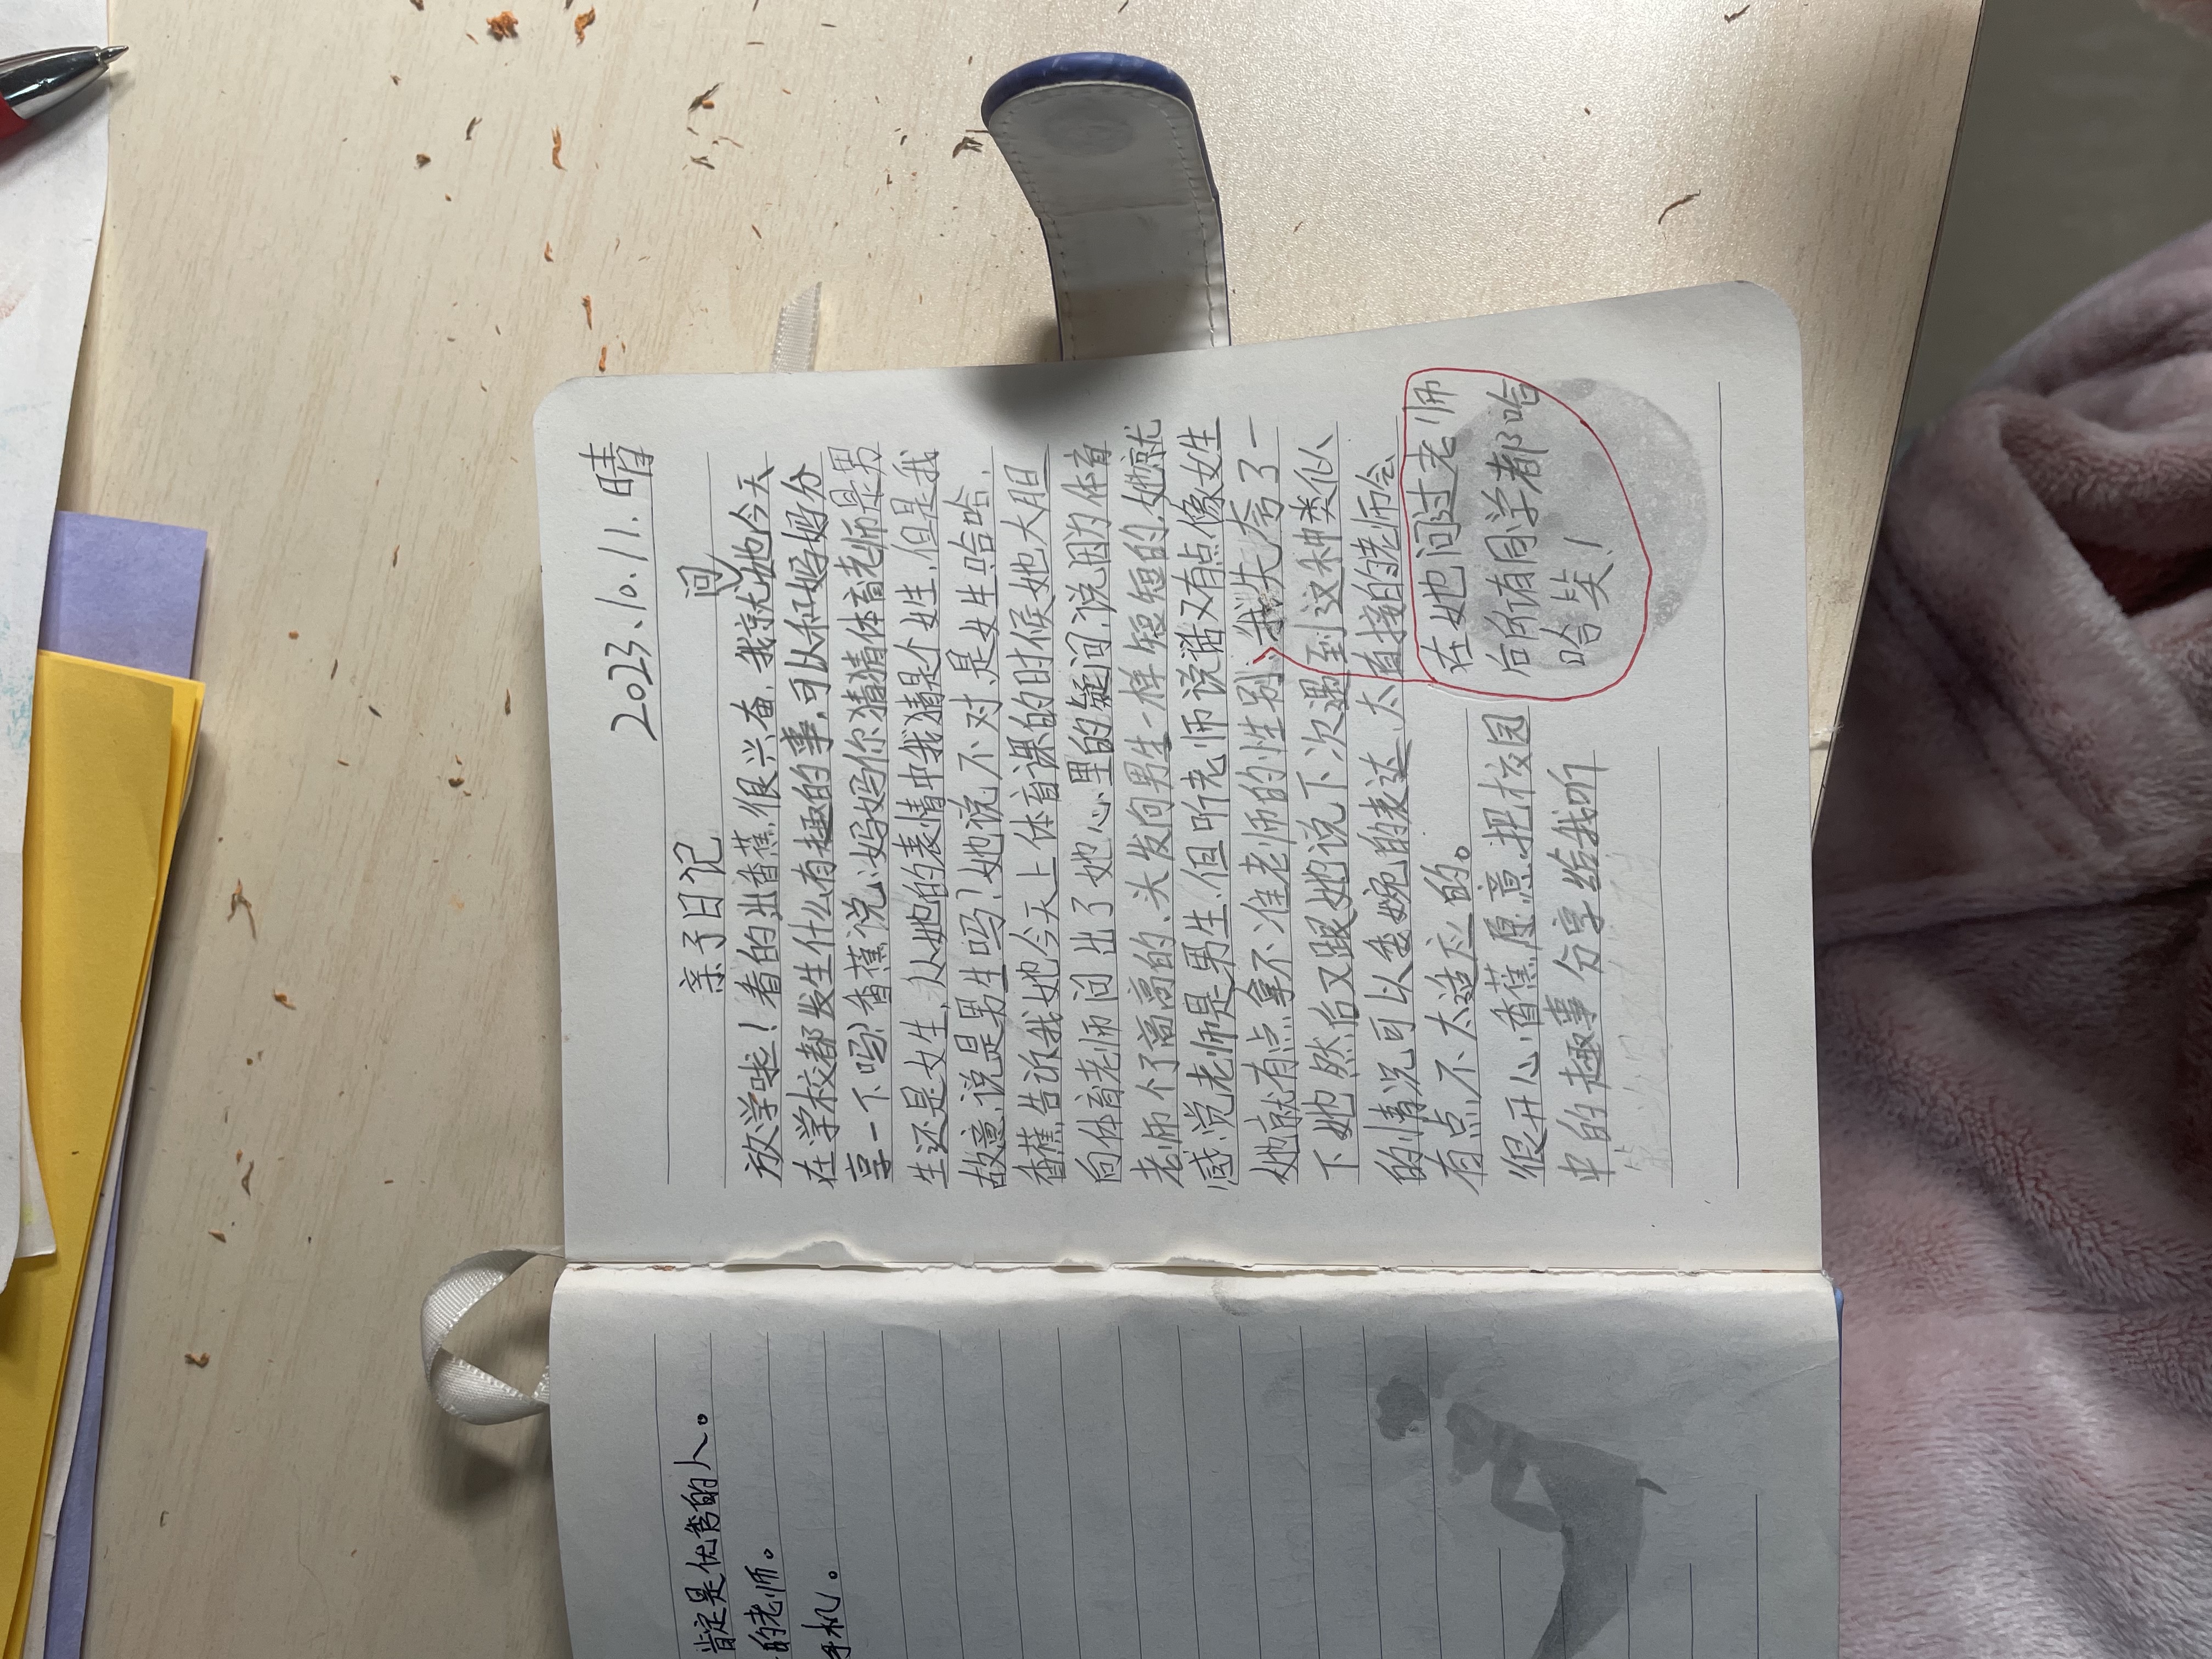 2023.10.11.晴
亲子日记
问
放学啦！看的出香蕉很兴奋，我就她今天
在学校都发生什么有趣的事，可以和妈妈分
享一下吗？香蕉说：妈妈你猜猜体育老师是男
生还是女生，从她的表情中我猜是个女生，但是我
故意说是男生吗！她说不对，是女生哈哈，
香蕉告诉我她今天上体育课的时候她大胆
向体育老师问出了她心里的疑问，说因为体育
老师个子高高的、头发向男生一样短短的，她就
感觉老师是男生，但听老师说话又有点像女生
她就有点拿不准老师的性别，我先夸了一
下她然后又跟她说下次遇到这种类似
的情况可以委婉的表达，太直接的老师会
有点不太适应的。
很开心香蕉愿意把校园
中的趣事分享给我听
在她问过老师
后所有同学都哈
哈笑！
肯定是优秀的人。
的老师。
手机。